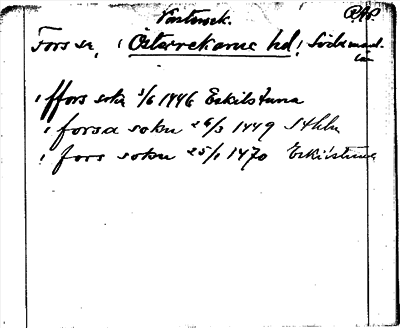 Västerrek. RAP
Fors sn, i Österrekarne hd, Söderman-
län
i ffors sokn 3/6 1446 Eskilstuna
i forsa sokn 26/3 1449 Sthlm
i fors sokn 25/1 1470 Eskilstuna